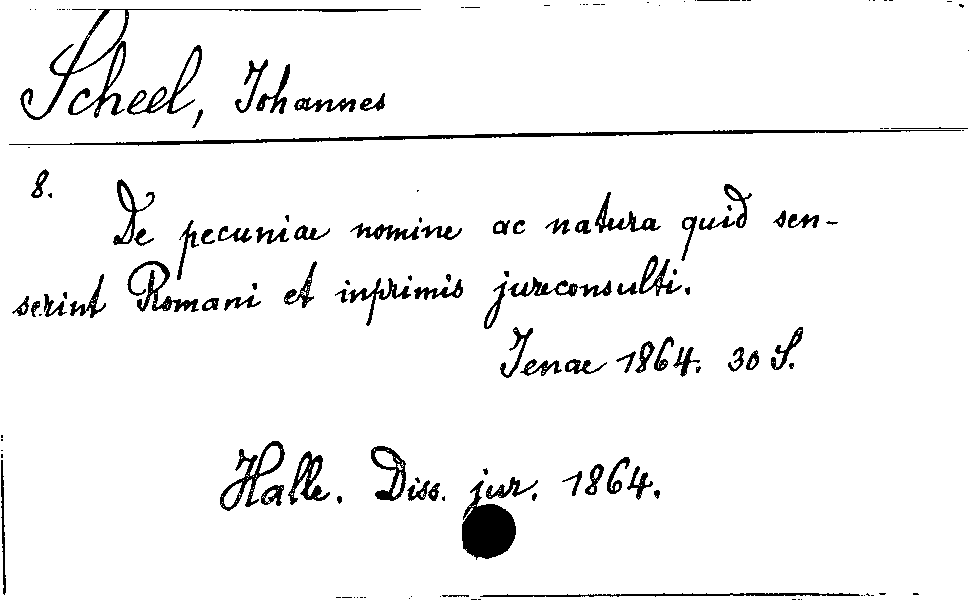 Scheel, Johannes
8.
De pecuniae nomine ac natura quid sen-
serint Romani et inprimis jureconsulti.
Jenae 1864. 30 S.
Halle. Diss. jur. 1864.